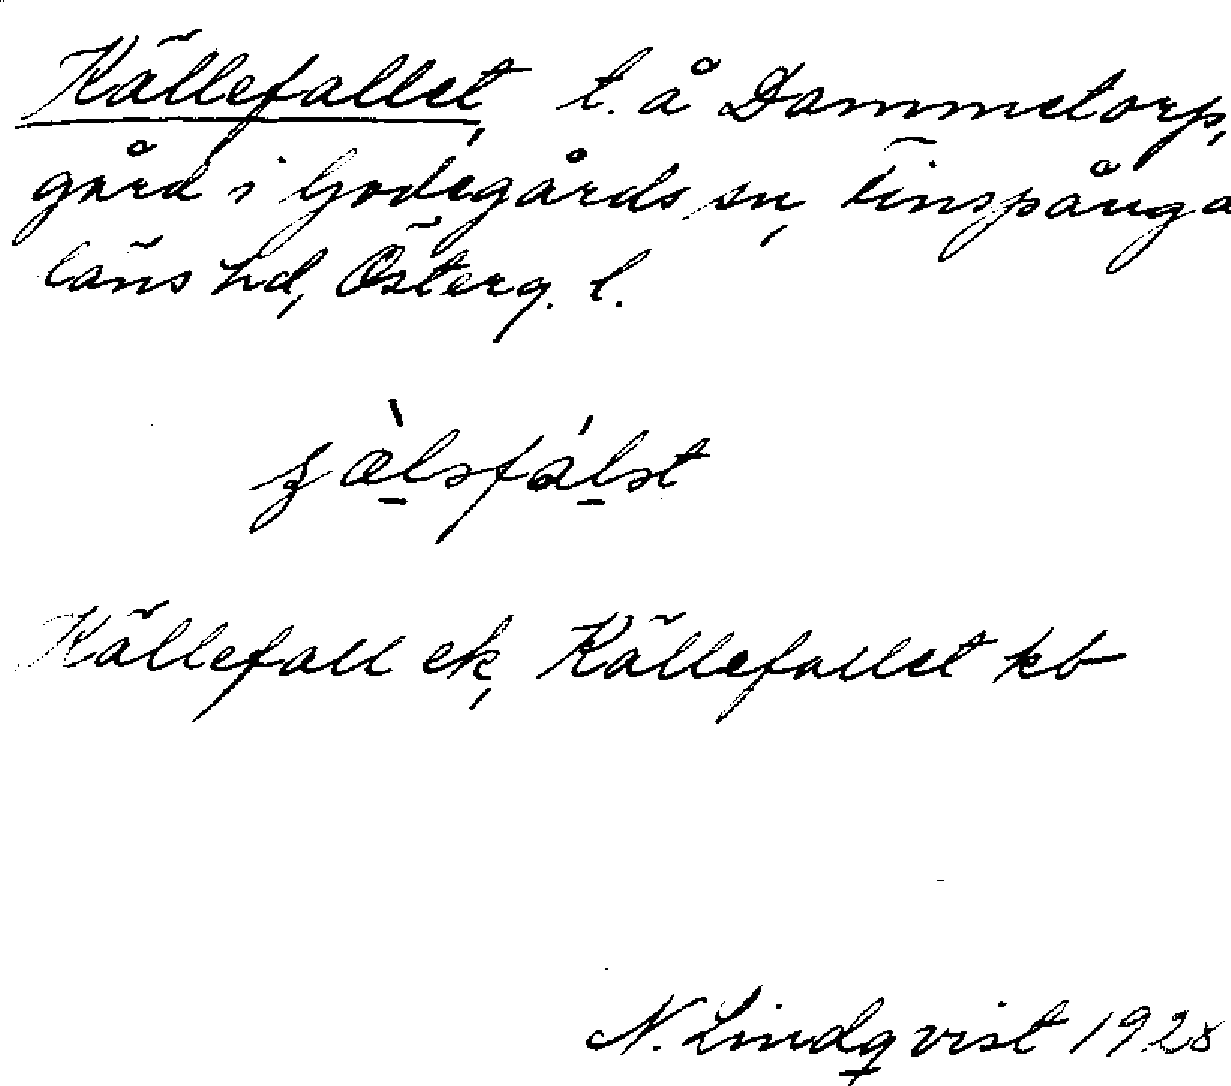 Källefallet, t. å Dammetorp,
gård i Godegårds sn, Finspånga
läns hd, Österg. l.
Källefall ek, Källefallet kb
N. Lindqvist 1928